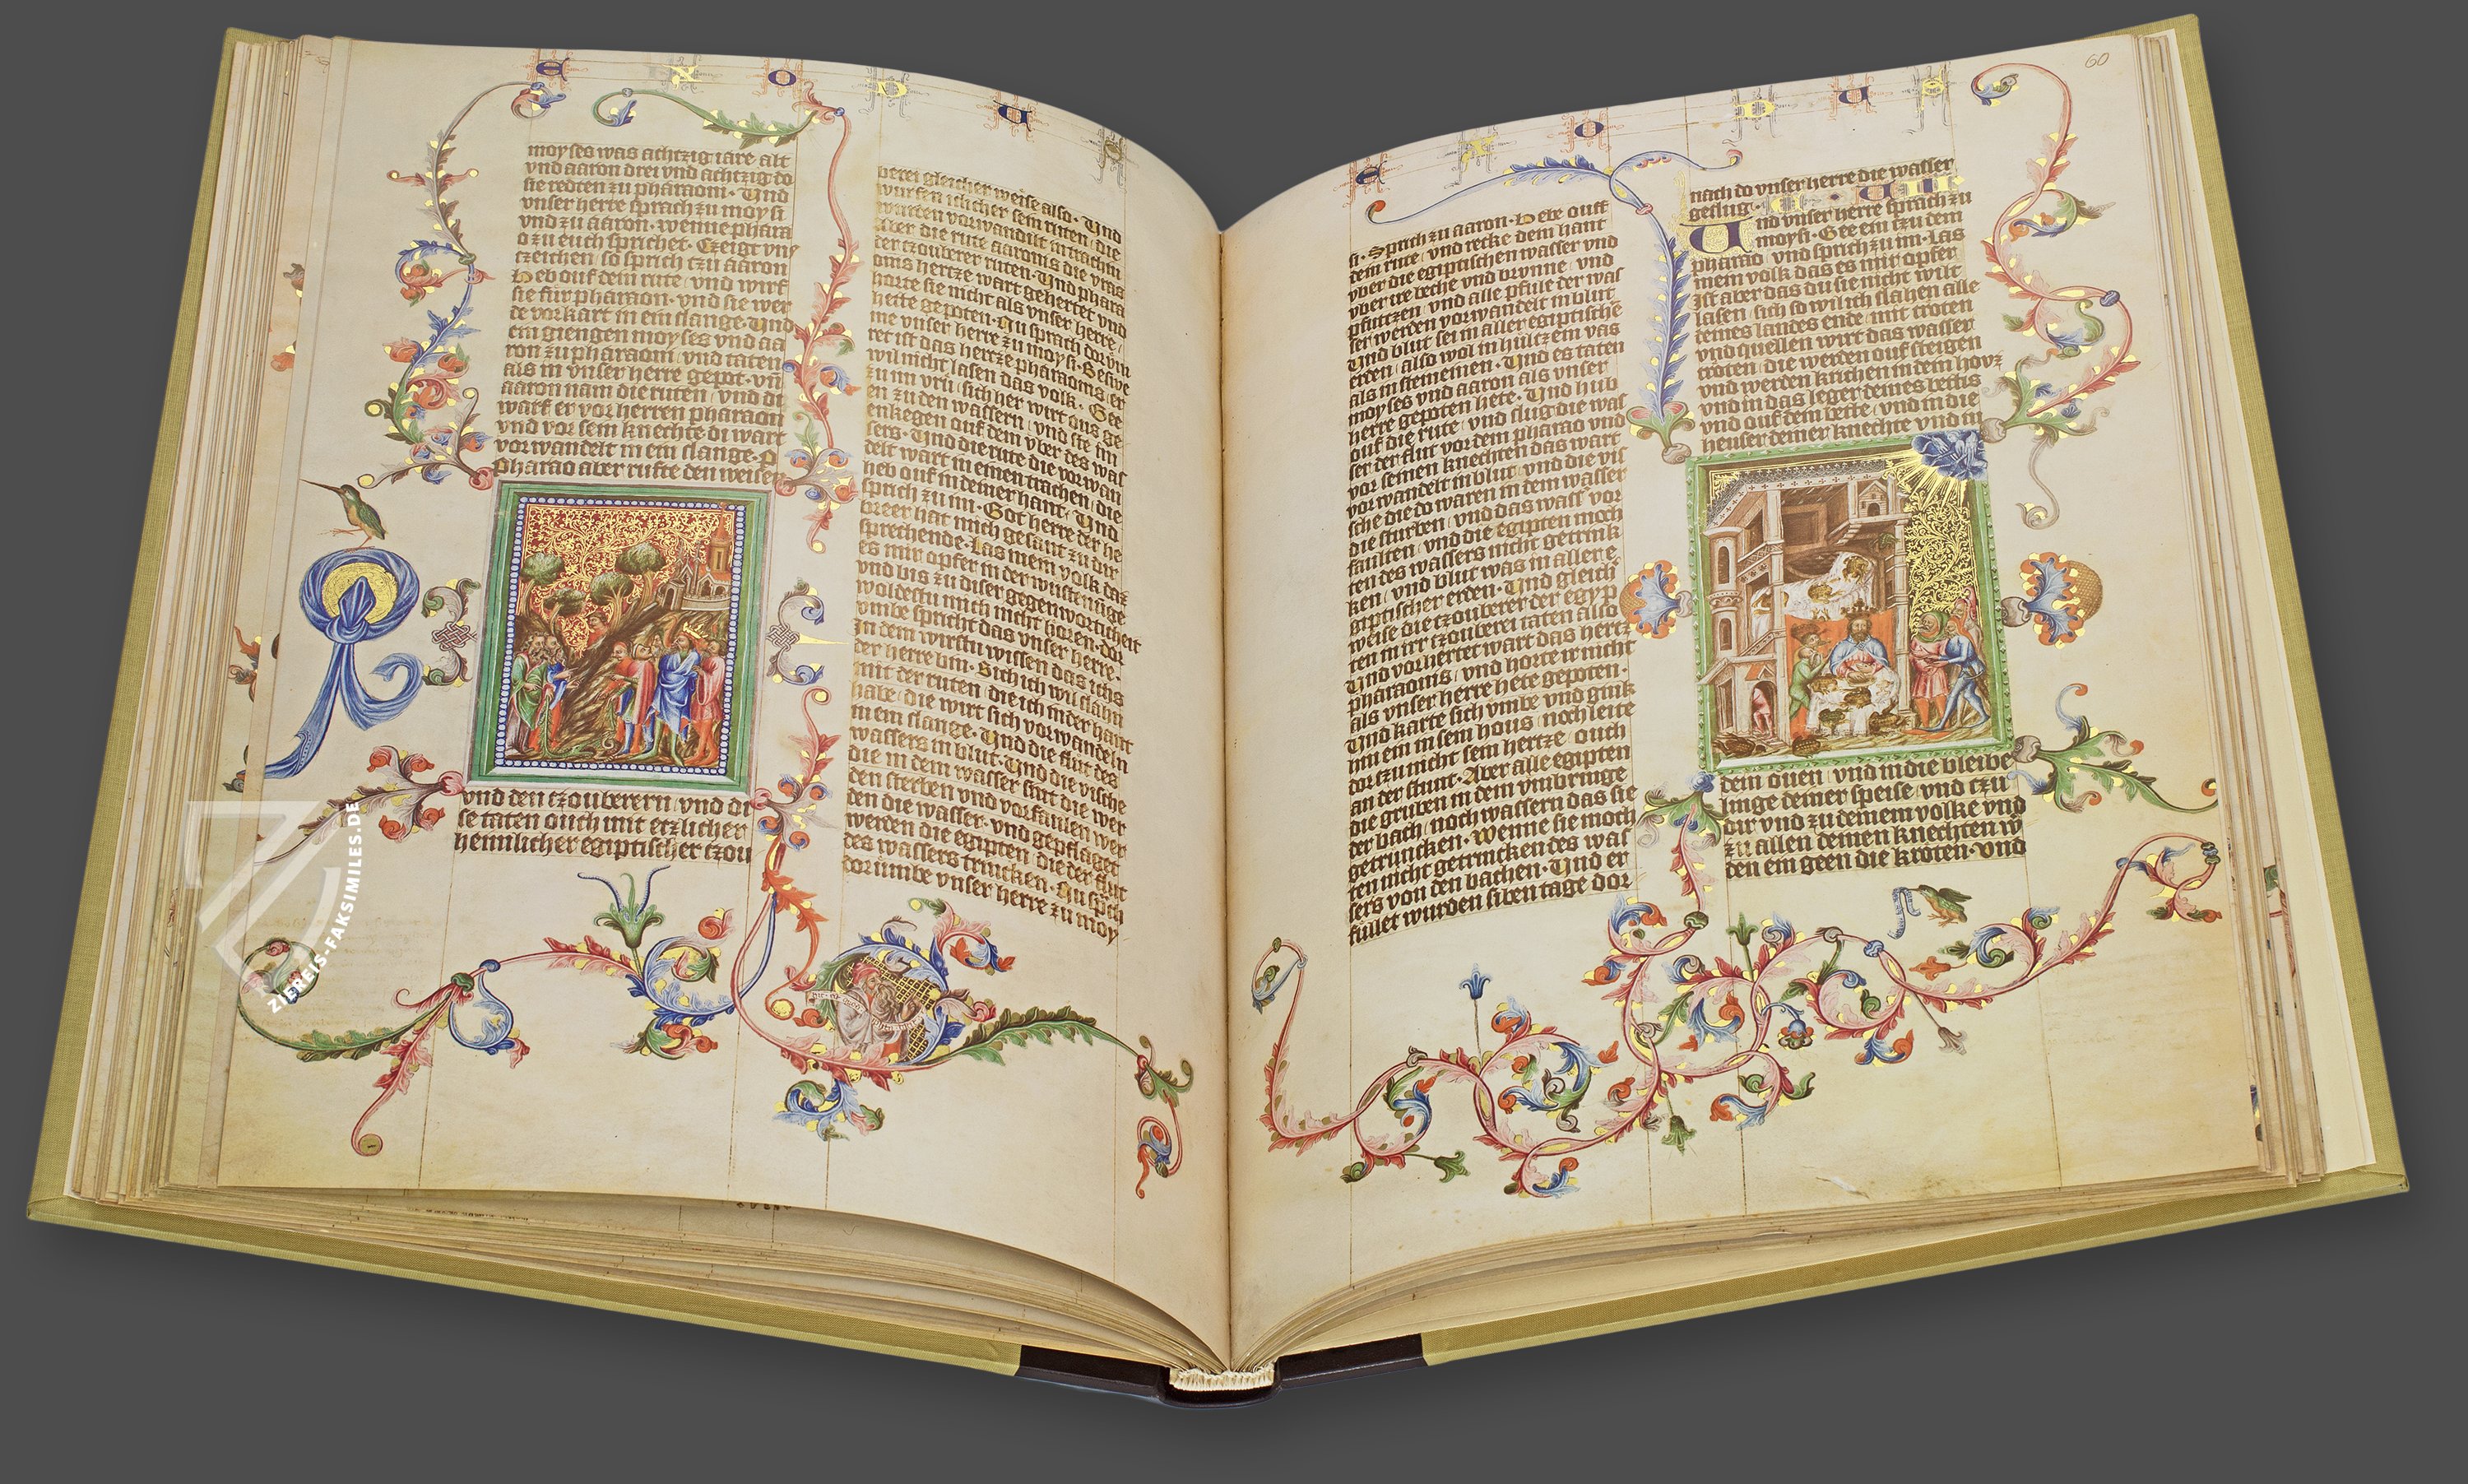 E X O D U S
moyses was achtzig iare alt
vnd aaron drei vnd achtzig do
sie redten zu pharaoni · Und
vnser herre sprach zu moysi
vnd zu aaron · wenne phara
o zu euch sprichet · Czeigt vns
tzeichen / so sprich tzu aaron
Heb ouf dein rute / vnd wirf
sie für pharaon · vnd sie wer
de vorkart in ein slange · Und
ein giengen moyses vnd aa
ron zu pharaoni / vnd taten
als in vnser herre gepot · vñ
aaron nam die ruten / vnd di
warf er vor herren pharaon
vnd vor sein knechte di wart
vorwandelt in ein slange ·
pharao aber rufte den weisen
vnd den tzouberern / vnd di
se taten ouch mit etzlicher
heimlicher egiptischer tzou
berei gleicher weise also · Und
wurfen itlicher sein ruten / die
wurden vorwandelt in trachin
Aber die rute aaronis die vras
der tzouberer ruten · Und phara
onis hertze wart gehertet vnd
horte sie nicht als vnser herre /
hette gepoten · Zu sprach vnser
herre zu moysi · Beswe
ret ist das hertze pharaonis / er
wil nicht lasen das volk · Gee
zu im vru / sich her wirt ous ge
en zu den wassern / vnd ste im
enkegen ouf dem vber des was
sers · Und die rute die vorwan
delt wart in einen trachen / die
heb ouf in deiner hant / Und
sprich zu im · Got herre der he
breer hat mich gesant zu dir
sprechende · Las mein volk daz
es mir opfer in der wustenunge
vnd bis zu diser gegenwortickeit
woldestu mich nicht horen · dor
vmbe spricht das vnser herre ·
In dem wirstu wissen das ichs
der herre bin · Sich ich wil slahn
mit der ruten / die ich in der hant
habe / die wirt sich vorwandeln
in ein slange · Und die flut des
wassers in blut · Und die vische
die in dem wasser sint die wer
den sterben vnd vorfaulen wer
den die wasser · vnd gepflaget
werden die egipten die der flut
des wassers trincken · Zu spch
dorümbe vnser herre zu moy
E X O D U S
60
si · Sprich zu aaron · Hebe ouff
dein rute / vnd recke dein hant
vber die egiptischen wasser vnd
vber ire beche vnd brunne / vnd
pfutzen / vnd alle pfule der was
ser werden vorwandelt in blut
Und blut sei in aller egiptische
erden / also wol in hültzein vas
als in steineinen · Und es taten
moyses vnd aaron als vnser
herre gepoten hete · Und hub
ouf die rute / vnd slug die was
ser der flut vor dem pharao vnd
vor seinen knechten das wart
vorwandelt in blut / vnd die vis
sche die do waren in dem wasser
die sturben / vnd das wasser vor
faulten / vnd die egipten moch
ten des wassers nicht getrink
ken / vnd blut was in aller e
giptischer erden · Und gleich
weise die tzouberer der egyp
ten in irr tzouberei taten also
Und vorhertet wart das hertz
pharaonis / vnd horte ir nicht
als vnser herre hete gepoten ·
Und karte sich vmbe vnd gink
hin ein in sein hous / noch leite
dortzu nicht sein hertze / ouch
an der stunt · Aber alle egipten
die gruben in dem vmbringe
der bach / noch wassern das sie
getruncken · Wenne sie moch
ten nicht getrincken des was
sers von den bachen · Und er
füllet wurden siben tage dor
nach do vnser herre die wasser
geslug ·
Und vnser herre sprach zu
moysi · Gee ein tzu dem
pharao / vnd sprich zu im · Las
mein volk das es mir opfer
Ist aber das du sie nicht wilt
lasen / sich so wil ich slahen alle
deines landes ende / mit croten
vnd quellen wirt das wasser
croten / die werden ouf steigen
vnd werden krichen in dein hovz
vnd in das leger deines bettis
vnd ouf dein bette / vnd in die
heuser deiner knechte vnd in
dein ouen / vnd in die bleibe
linge deiner speise / vnd tzu
dir vnd zu deinem volke vnd
zu allen deinen knechten w
den ein geen die kroten · vnd
ZIEREIS-FAKSIMILES.DE